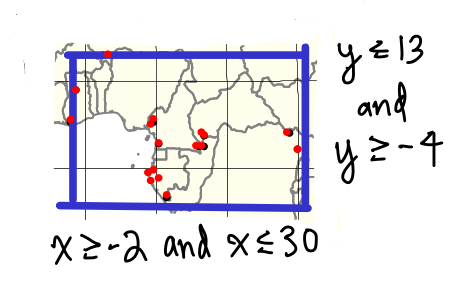 y ≤ 13
and
y ≥ -4
x ≥ -2 and x ≤ 30